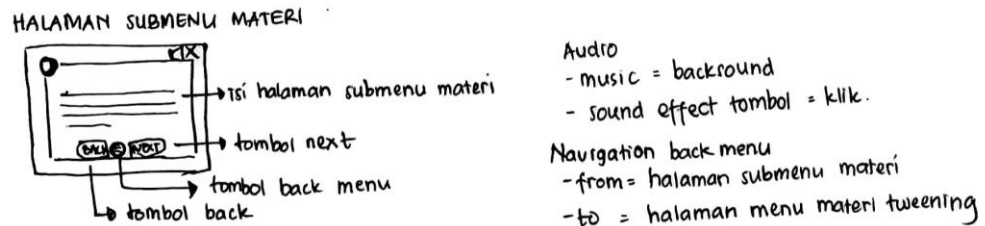 HALAMAN SUBMENU MATERI
X
isi halaman submenu materi
BACK NEXT
tombol next
tombol back menu
tombol back
Audio
- music = backsound
- sound effect tombol = klik.
Navigation back menu
- from = halaman submenu materi
- to = halaman menu materi tweening